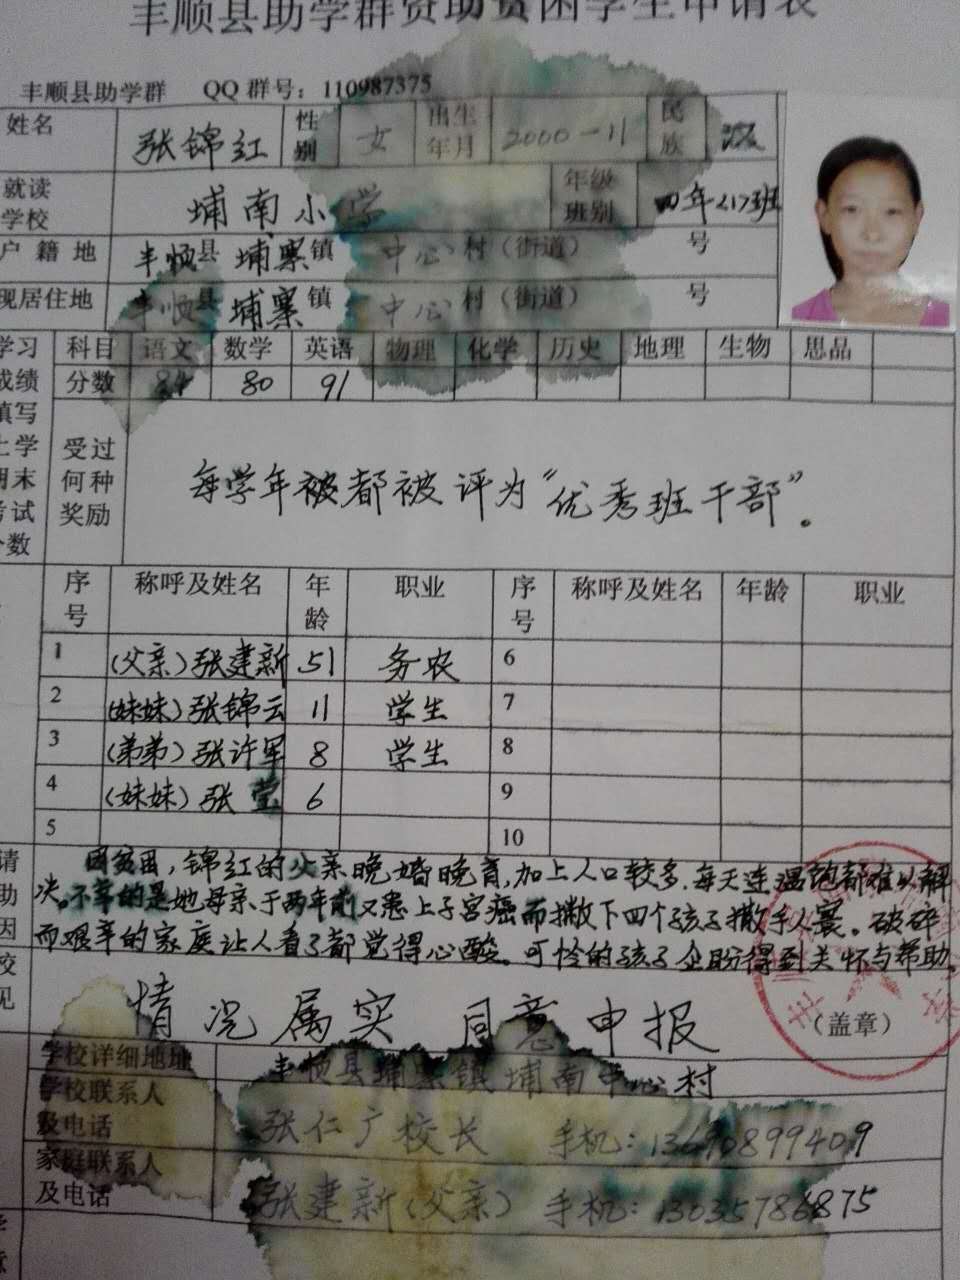 丰顺县助学群资助贫困学生申请表
丰顺县助学群 QQ 群号：110987375
姓名 张锦红 性别 女 出生年月 2000-11 民族 汉
就读学校 埔南小学 年级班别 四年<1>班
户籍地 丰顺县 埔寨镇 中心村（街道） 号
现居住地 丰顺县 埔寨镇 中心村（街道） 号
科目 语文 数学 英语 物理 化学 历史 地理 生物 思品
分数 84 80 91
学习成绩填写上学期末考试分数
受过何种奖励 每学年被都被评为“优秀班干部”。
序号 称呼及姓名 年龄 职业 序号 称呼及姓名 年龄 职业
1 (父亲)张建新 51 务农 6
2 (妹妹)张锦云 11 学生 7
3 (弟弟)张许军 8 学生 8
4 (妹妹)张莹 6 9
5 10
请助因
因贫困，锦红的父亲晚婚晚育，加上人口较多，每天连温饱都难以解
决。不幸的是她母亲于两年前又患上子宫癌而撇下四个孩子撒手人寰。破碎
而艰辛的家庭让人看了都觉得心酸。可怜的孩子企盼得到关怀与帮助。
校见 情况属实 同意申报 （盖章）
学校详细地址 丰顺县埔寨镇埔南中心村
学校联系人及电话 张仁广校长 手机：13690899409
家庭联系人及电话 张建新(父亲) 手机：13035786875